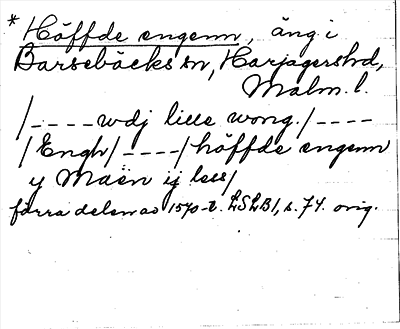 * Höffde engenn, äng i
Barsebäcks sn, Harjagershd,
Malm. l.
/_ _ _ _ wdj lille wong./_ _ _ _
/Engh/_ _ _ _/höffde engenn
y Maën ij less/
förra delen av 1570-t. LSLB1, s. 74. orig.